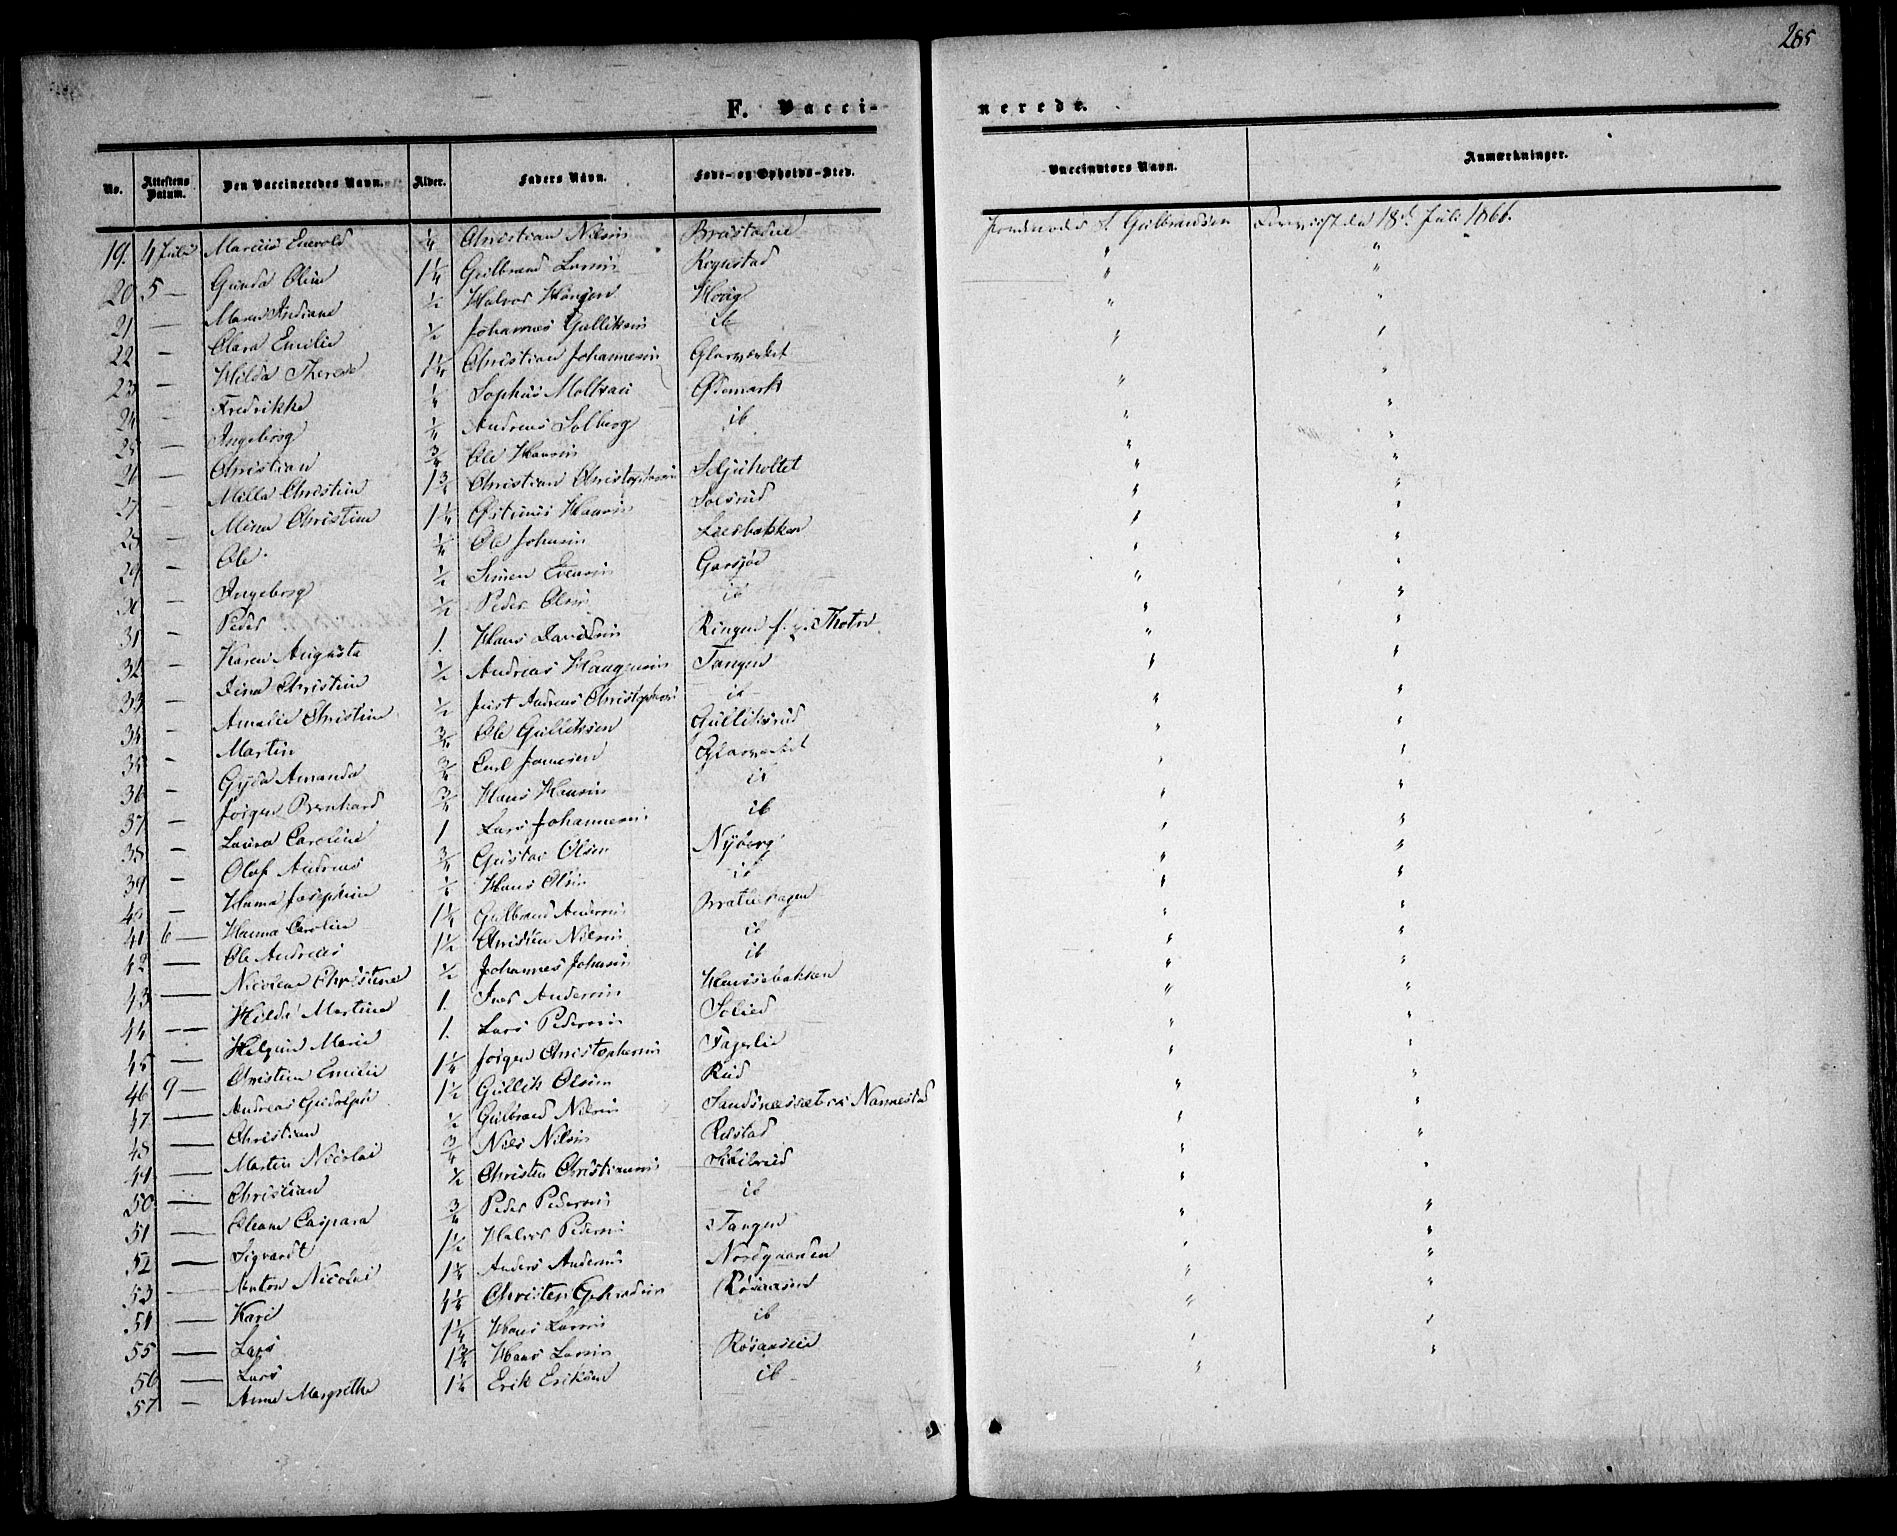 285
F. Vaccinerede.
No. Attestens Datum. Den Vaccineredes Navn. Alder. Faders Navn. Føde- og Opholds-Sted. Vaccinators Navn. Anmærkninger.
19. 4 Juli Marcus Enevold 1/4 Christian Nilsen S. Gulbrandsen 18de Juli 1866.
20 5 — Gunda Oline 1 1/4 Gulbrand Larsen Rognstad " "
21 — Maren Andiane 1/2 Halvor Hansen Houg " "
22 — Clara Emilie 1/2 Johannes Gulliksen ib " "
23 — Hilda Therese 1 1/4 Christian Johannesen Glasværket " "
24 — Fredrikke 1/4 Sophus Moltzau Ødemark " "
25 — Ingeborg 1/4 Andreas Solberg ib " "
26 — Christian 3/4 Ole Hansen " "
27 — Milla Christine 1 3/4 Christian Christophersen Seljeholtet " "
28 — Mina Christine 1 1/4 Hansen Solsrud " "
29 — Ole 1/4 Ole Johnsen " "
30 — Ingeborg 1/2 Simen Evensen Garsjøe " "
31 — Peder 1/2 Peder Olsen ib " "
32 — Karen Augusta 1. Hans Davidsen Ringen " "
33 — Dina Christine 1/2 Andreas Haugensen Tangen " "
34 — Amalie Christine 1/2 Just Andreas Christophersen ib " "
35 — Martin 3/4 Ole Gulliksen Gulliksrud " "
36 — Gyda Amanda 3/4 Carl Jansen Glasværket " "
37 — Jørgen Bernhard 3/4 Hans Hansen ib " "
38 — Laura Caroline 1 Lars Johannesen ib " "
39 — Olaf Andreas 3/4 Gustav Olsen Nyborg " "
40 — Hanna Josephine Hans Olsen ib " "
41 6 — Hanna Caroline 1 1/4 Gulbrand Andersen Bratliehagen " "
42 — Ole Andreas 1 1/2 Christen Nilsen ib " "
43 — Nicoline Christine 1/2 Johannes Johnsen ib " "
44 — Hilda Martine 1. Iver Andersen " "
45 — Helgine Marie 1. Lars Pedersen Solied " "
46 9 — Christine Emilie 1 1/4 Jørgen Christophersen Fagerlie " "
47 — Andreas 1 1/2 Gullik Olsen Rud " "
48 — Christian 1/2 Gulbrand Nilsen Nannestad " "
49 — Martin Nicolai 3/4 Nils Nilsen Rustad " "
50 — Christian 1/2 Christen Christiansen " "
51 — Oleane Caspara 3/4 Peder Pedersen ib " "
52 — Sigvardt 1 1/2 Halvor Pedersen Tangen " "
53 — Anton Nicolai 1 1/4 Anders Andersen Nordgaarden " "
54 — Kari 1 1/4 Christen " "
55 — Lars 1 1/4 Hans Larsen ib " "
56 — Lars 1 3/4 Hans Larsen " "
57 — Anne Margrethe 1 1/4 Erik Eriksen ib "